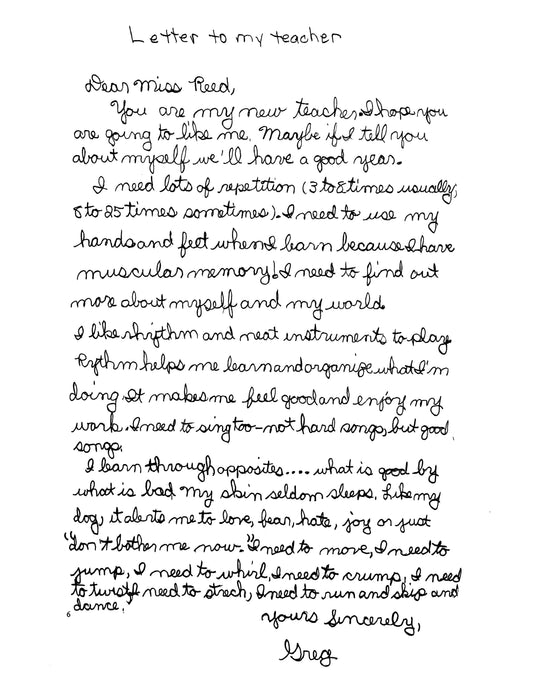 Letter to my teacher
Dear Miss Reed,
You are my new teacher. I hope you
are going to like me. Maybe if I tell you
about myself we'll have a good year.
I need lots of repetition (3 to 8 times usually,
8 to 25 times sometimes). I need to use my
hands and feet when I learn because I have
muscular memory! I need to find out
more about myself and my world.
I like rhythm and neat instruments to play.
Rythm helps me learn and organize what I'm
doing. It makes me feel good and enjoy my
work. I need to sing too-not hard songs, but good
songs.
I learn through opposites.... what is good by
what is bad. My skin seldom sleeps. Like my
dog, it alerts me to love, fear, hate, joy or just
"don't bother me now." I need to move, I need to
jump, I need to whirl, I need to crump, I need
to twist I need to strech, I need to run and skip and
dance.
Yours Sincerely,
Greg